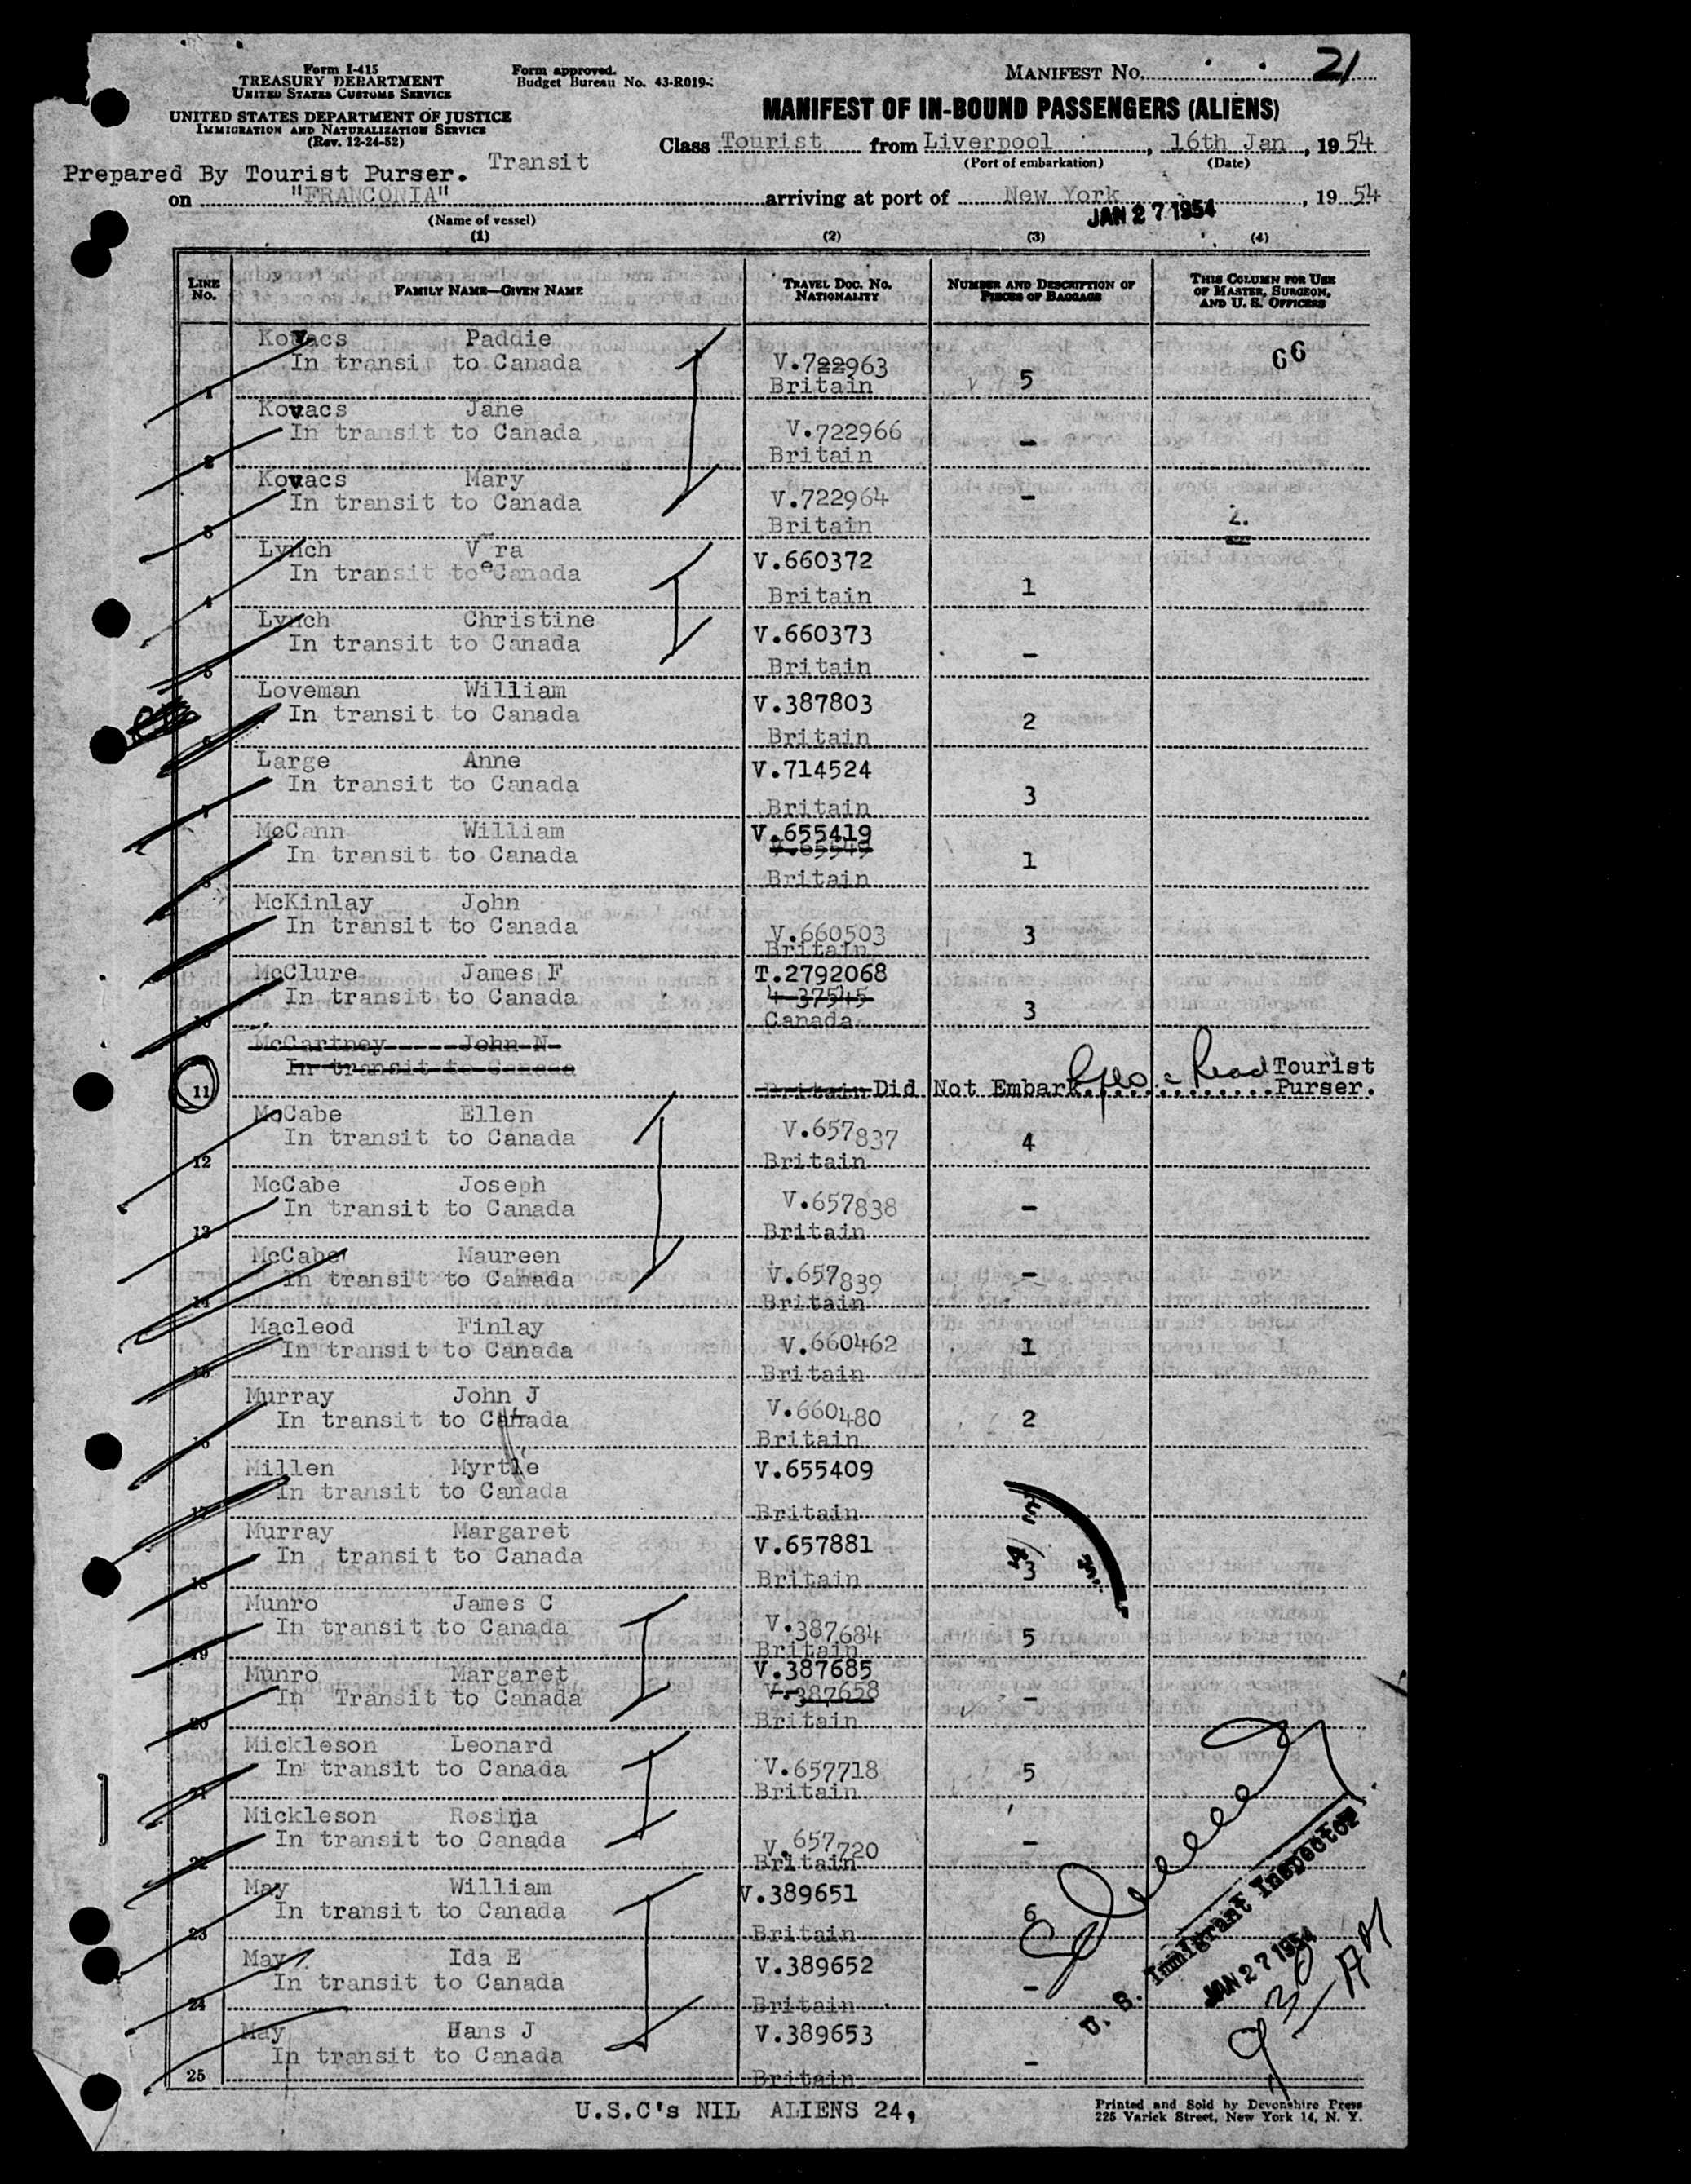 Form I-415
TREASURY DEPARTMENT
UNITED STATES CUSTOMS SERVICE
UNITED STATES DEPARTMENT OF JUSTICE
IMMIGRATION AND NATURALIZATION SERVICE
(Rev. 12-24-52)
Form approved.
Budget Bureau No. 43-R019-
MANIFEST No. 21
MANIFEST OF IN-BOUND PASSENGERS (ALIENS)
Class Tourist from Liverpool, 16th Jan, 19 54
(Port of embarkation) (Date)
Transit
Prepared By Tourist Purser.
on "FRANCONIA" arriving at port of New York, 19 54
JAN 27 1954
(Name of vessel)
(1) (2) (3) (4)
LINE No. FAMILY NAME—GIVEN NAME TRAVEL DOC. No. NATIONALITY NUMBER AND DESCRIPTION OF PIECES OF BAGGAGE THIS COLUMN FOR USE OF MASTER, SURGEON, AND U. S. OFFICERS
66
Kovacs Paddie V.722963
1 In transit to Canada Britain 5
Kovacs Jane V.722966
2 In transit to Canada Britain -
Kovacs Mary V.722964
3 In transit to Canada Britain - 2.
Lynch Vera V.660372
4 In transit to Canada Britain 1
Lynch Christine V.660373
5 In transit to Canada Britain -
Loveman William V.387803
6 In transit to Canada Britain 2
Large Anne V.714524
7 In transit to Canada Britain 3
McCann William V.655419
V.65549
8 In transit to Canada Britain 1
McKinlay John V.660503
In transit to Canada Britain 3
McClure James F T.2792068
4-37545
10 In transit to Canada Canada 3
McCartney John N
In transit to Canada
11 Britain Did Not Embark. Tourist Purser.
McCabe Ellen V.657837
12 In transit to Canada Britain 4
McCabe Joseph V.657838
13 In transit to Canada Britain -
McCabe Maureen V.657839
14 In transit to Canada Britain -
Macleod Finlay V.660462
15 In transit to Canada Britain 1
Murray John J V.660480
16 In transit to Canada Britain 2
Millen Myrtle V.655409
17 In transit to Canada Britain
Murray Margaret V.657881
18 In transit to Canada Britain 3
Munro James C V.387684
19 In transit to Canada Britain 5
Munro Margaret V.387685
V.387658
20 In Transit to Canada Britain -
Mickleson Leonard V.657718
21 In transit to Canada Britain 5
Mickleson Rosina V.657720
22 In transit to Canada Britain -
May William V.389651
23 In transit to Canada Britain 6
May Ida E V.389652
24 In transit to Canada Britain -
May Hans J V.389653
25 In transit to Canada Britain -
U. S. Immigrant Inspector
JAN 27 1954
930 AM
U.S.C's NIL ALIENS 24,
Printed and Sold by Devonshire Press
225 Varick Street, New York 14, N. Y.